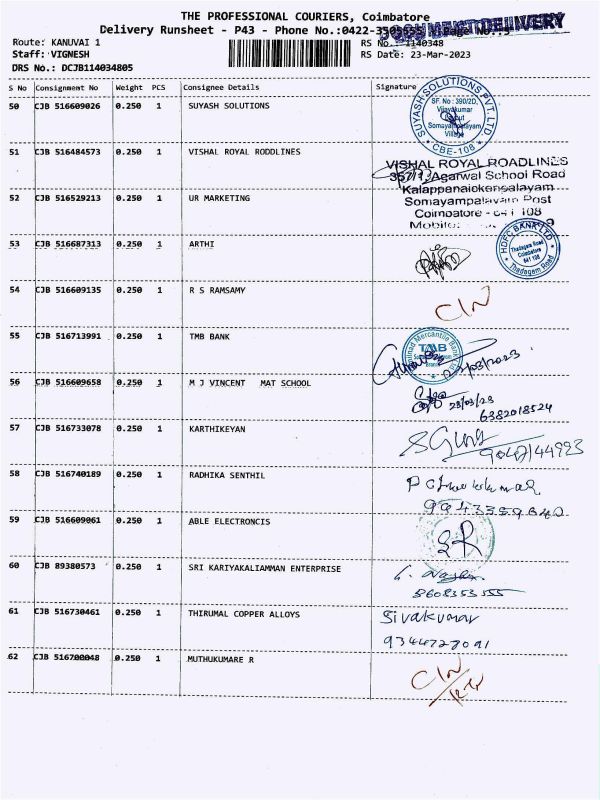 THE PROFESSIONAL COURIERS, Coimbatore
Delivery Runsheet - P43 - Phone No.:0422-
DOCUMENT DELIVERY
Route: KANUVAI 1
RS No.: 1140348
Staff: VIGNESH
RS Date: 23-Mar-2023
DRS No.: DCJB114034805
S No Consignment No Weight PCS Consignee Details Signature
50 CJB 516609026 0.250 1 SUYASH SOLUTIONS
SUYASH SOLUTIONS PVT. LTD
SF. No : 390/2D,
Vijayakumar
Somayampalayam
Village
CBE-108
51 CJB 516484573 0.250 1 VISHAL ROYAL RODDLINES
VISHAL ROYAL ROADLINES
Agarwal School Road
Kalappanaickenpalayam
52 CJB 516529213 0.250 1 UR MARKETING
Somayampalayam Post
Coimbatore - 641 108
Mobile:
53 CJB 516687313 0.250 1 ARTHI
HDFC BANK LTD
Thadagam Road
Coimbatore
641 108
Thadagam Road
54 CJB 516609135 0.250 1 R S RAMSAMY
C/N
55 CJB 516713991 0.250 1 TMB BANK
Tamilnad Mercantile Bank
TMB
Branch
23/03/2023
56 CJB 516609658 0.250 1 M J VINCENT MAT SCHOOL
23/03/23
6382018524
57 CJB 516733078 0.250 1 KARTHIKEYAN
58 CJB 516740189 0.250 1 RADHIKA SENTHIL
59 CJB 516609061 0.250 1 ABLE ELECTRONCIS
60 CJB 89380573 0.250 1 SRI KARIYAKALIAMMAN ENTERPRISE
8608353555
61 CJB 516730461 0.250 1 THIRUMAL COPPER ALLOYS
Sivakumar
9344727091
62 CJB 516700048 0.250 1 MUTHUKUMARE R
C/N